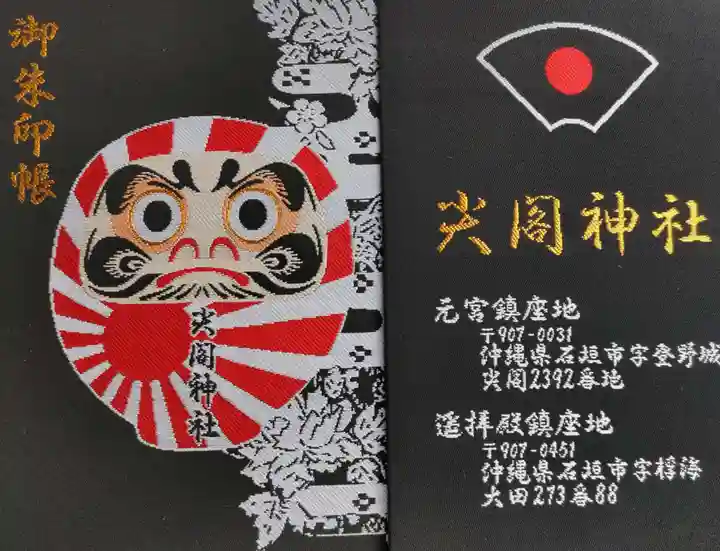 御朱印帳
尖閣神社
尖閣神社
元宮鎮座地
〒907-0031
沖縄県石垣市字登野城
尖閣2392番地
遥拝殿鎮座地
〒907-0451
沖縄県石垣市字桴海
大田273番88